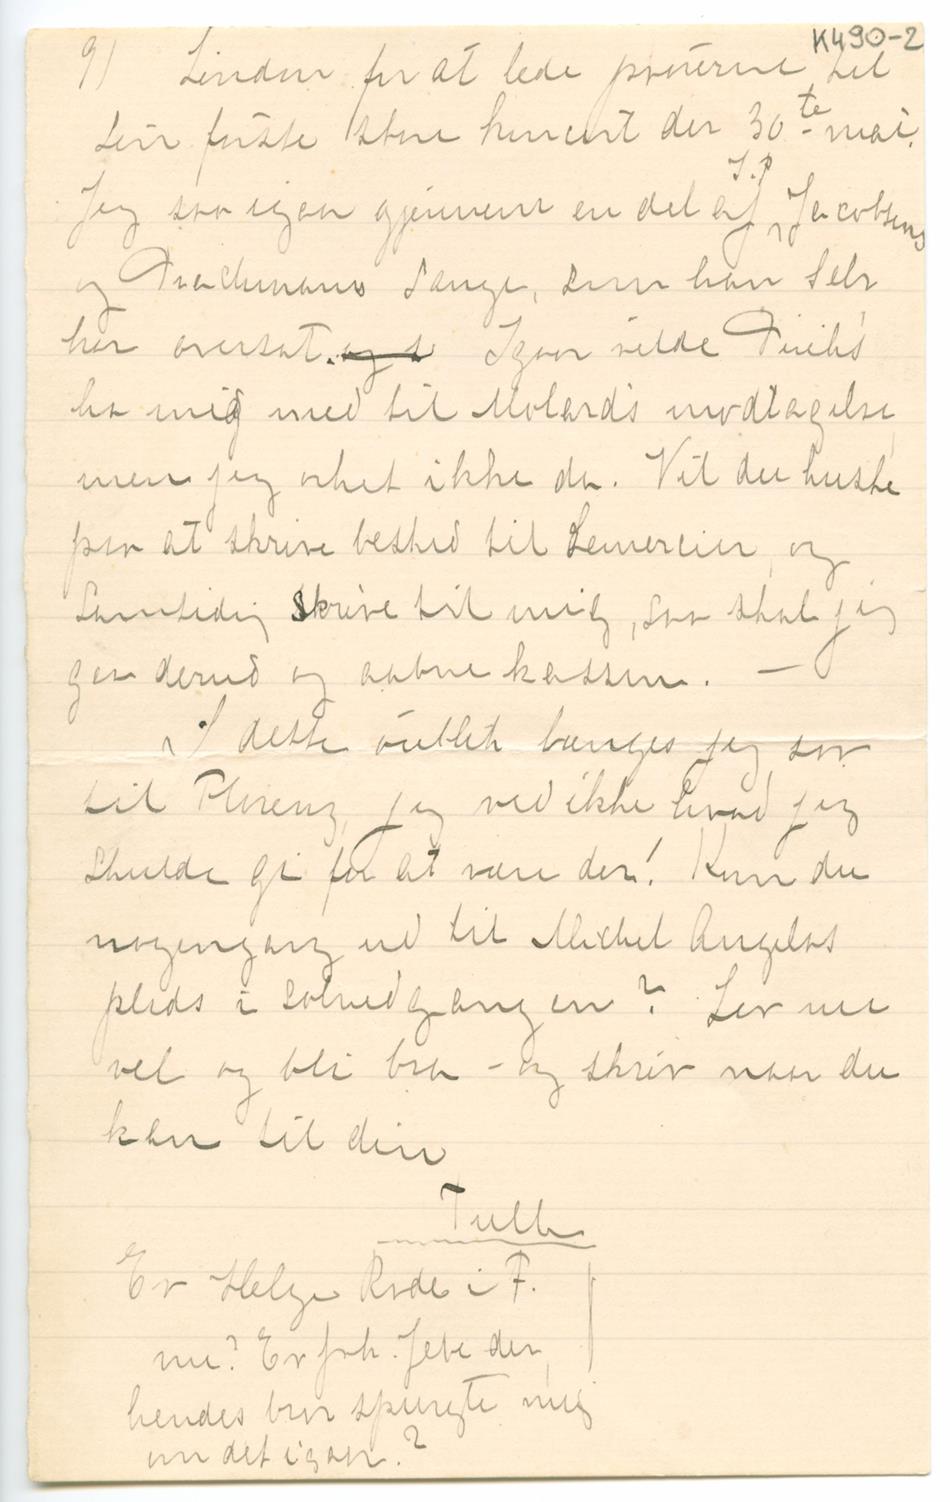 K490-2
9) London for at lede prøverne til
sin første store koncert den 30te mai.
Jeg saa igaar gjennem en del af J.P. Jacobsens
og Drachmanns Sange, som han selv
har oversat. og s Igaar vilde
ha mig med til Molards modtagelse,
men jeg orket ikke da. Vil du huske
paa at skrive besked til Lemercier, og
samtidig skrive til mig, saa skal jeg
gaa derud og aabne kassen. —
I dette øieblik længes jeg saa
til Florenz, jeg ved ikke hvad jeg
skulde gi for at være der! Kom du
nogengang ud til Michel Angelos
plads i solnedgangen? Lev nu
vel og bli bra - og skriv naar du
kan til din
Tulla
Er Helge Rode i F.
nu? Er frk. Jebe der,
hendes bror spurgte mig
om det igaar.?